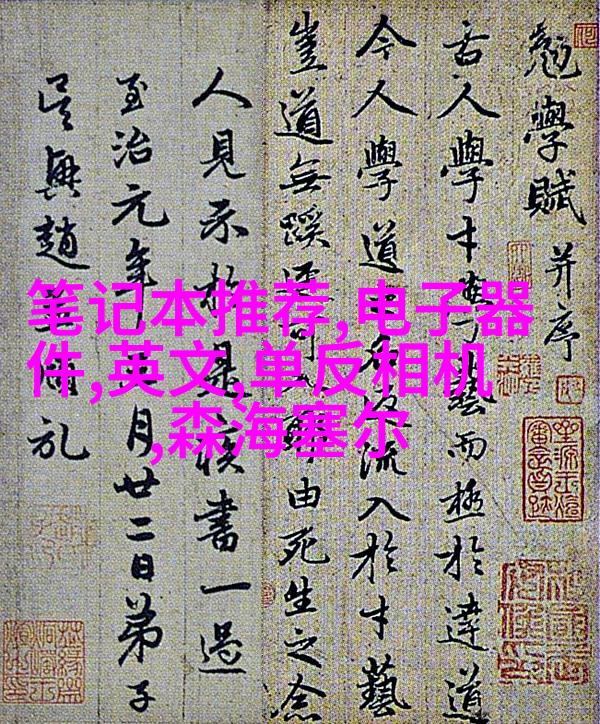 勉學賦并序
古人學藝而極於達道
今人學道流入於才藝
豈道無蹊由死生之念
人見示於是書一過
至治元年月廿二日弟子
吳興趙
笔记本推荐,电子器
件,英文,单反相机
,森海塞尔